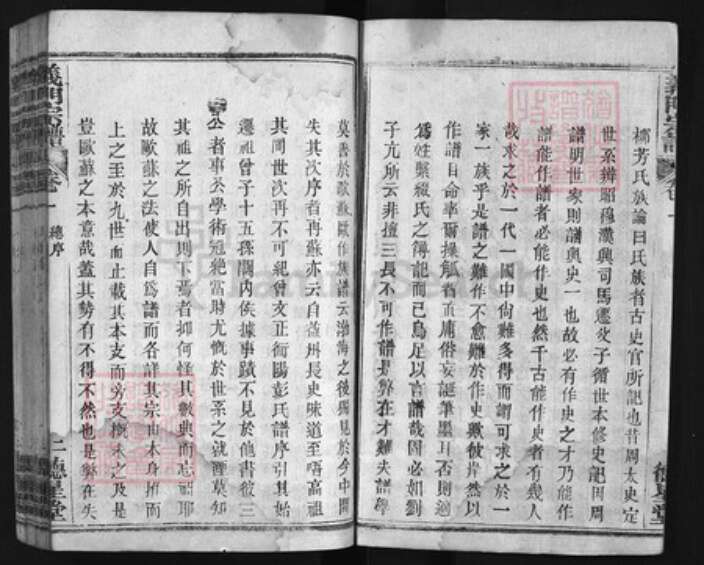 柳芳氏族論曰氏族者古史官所記也昔周太史定
世系辨昭穆漢興司馬遷父子循世本修史記因周
譜明世家則譜與史一也故必有作史之才乃能作
譜能作譜者必能作史也然千古能作史者有幾人
哉求之於一代一國中尚難多得而謂可求之於一
家一族乎是譜之難作不愈難於作史歟彼背然以
作譜自命率爾操觚者而庸俗妄誕筆墨耳否則
為姓繫綴氏之傳記而已烏足以言譜哉固必如劉
子亢所云非擅三長不可作譜是弊在才難失譜學
莫善於歐蘇歐作族譜云渤海之後獨見於今中間
失其次序者再蘇亦云自益州長史味道至吾高祖
其間世次再不可紀曾文正衡陽彭氏譜序引其始
遷祖曾子十五孫關內侯據事蹟不見於他書彼三
公者事炙學術冠絕當時尤慨於世系之就湮莫知
其祖之所自出則下焉者抑何怪其數典而忘祖耶
故歐蘇之法使人自為譜而各詳其宗由本身推而
上之至於九世而止載其本支而旁支概未之及是
豈歐蘇之本意哉蓋其勢有不得不然也是弊在失
義門宗譜
卷首
一 總序
二 德星堂